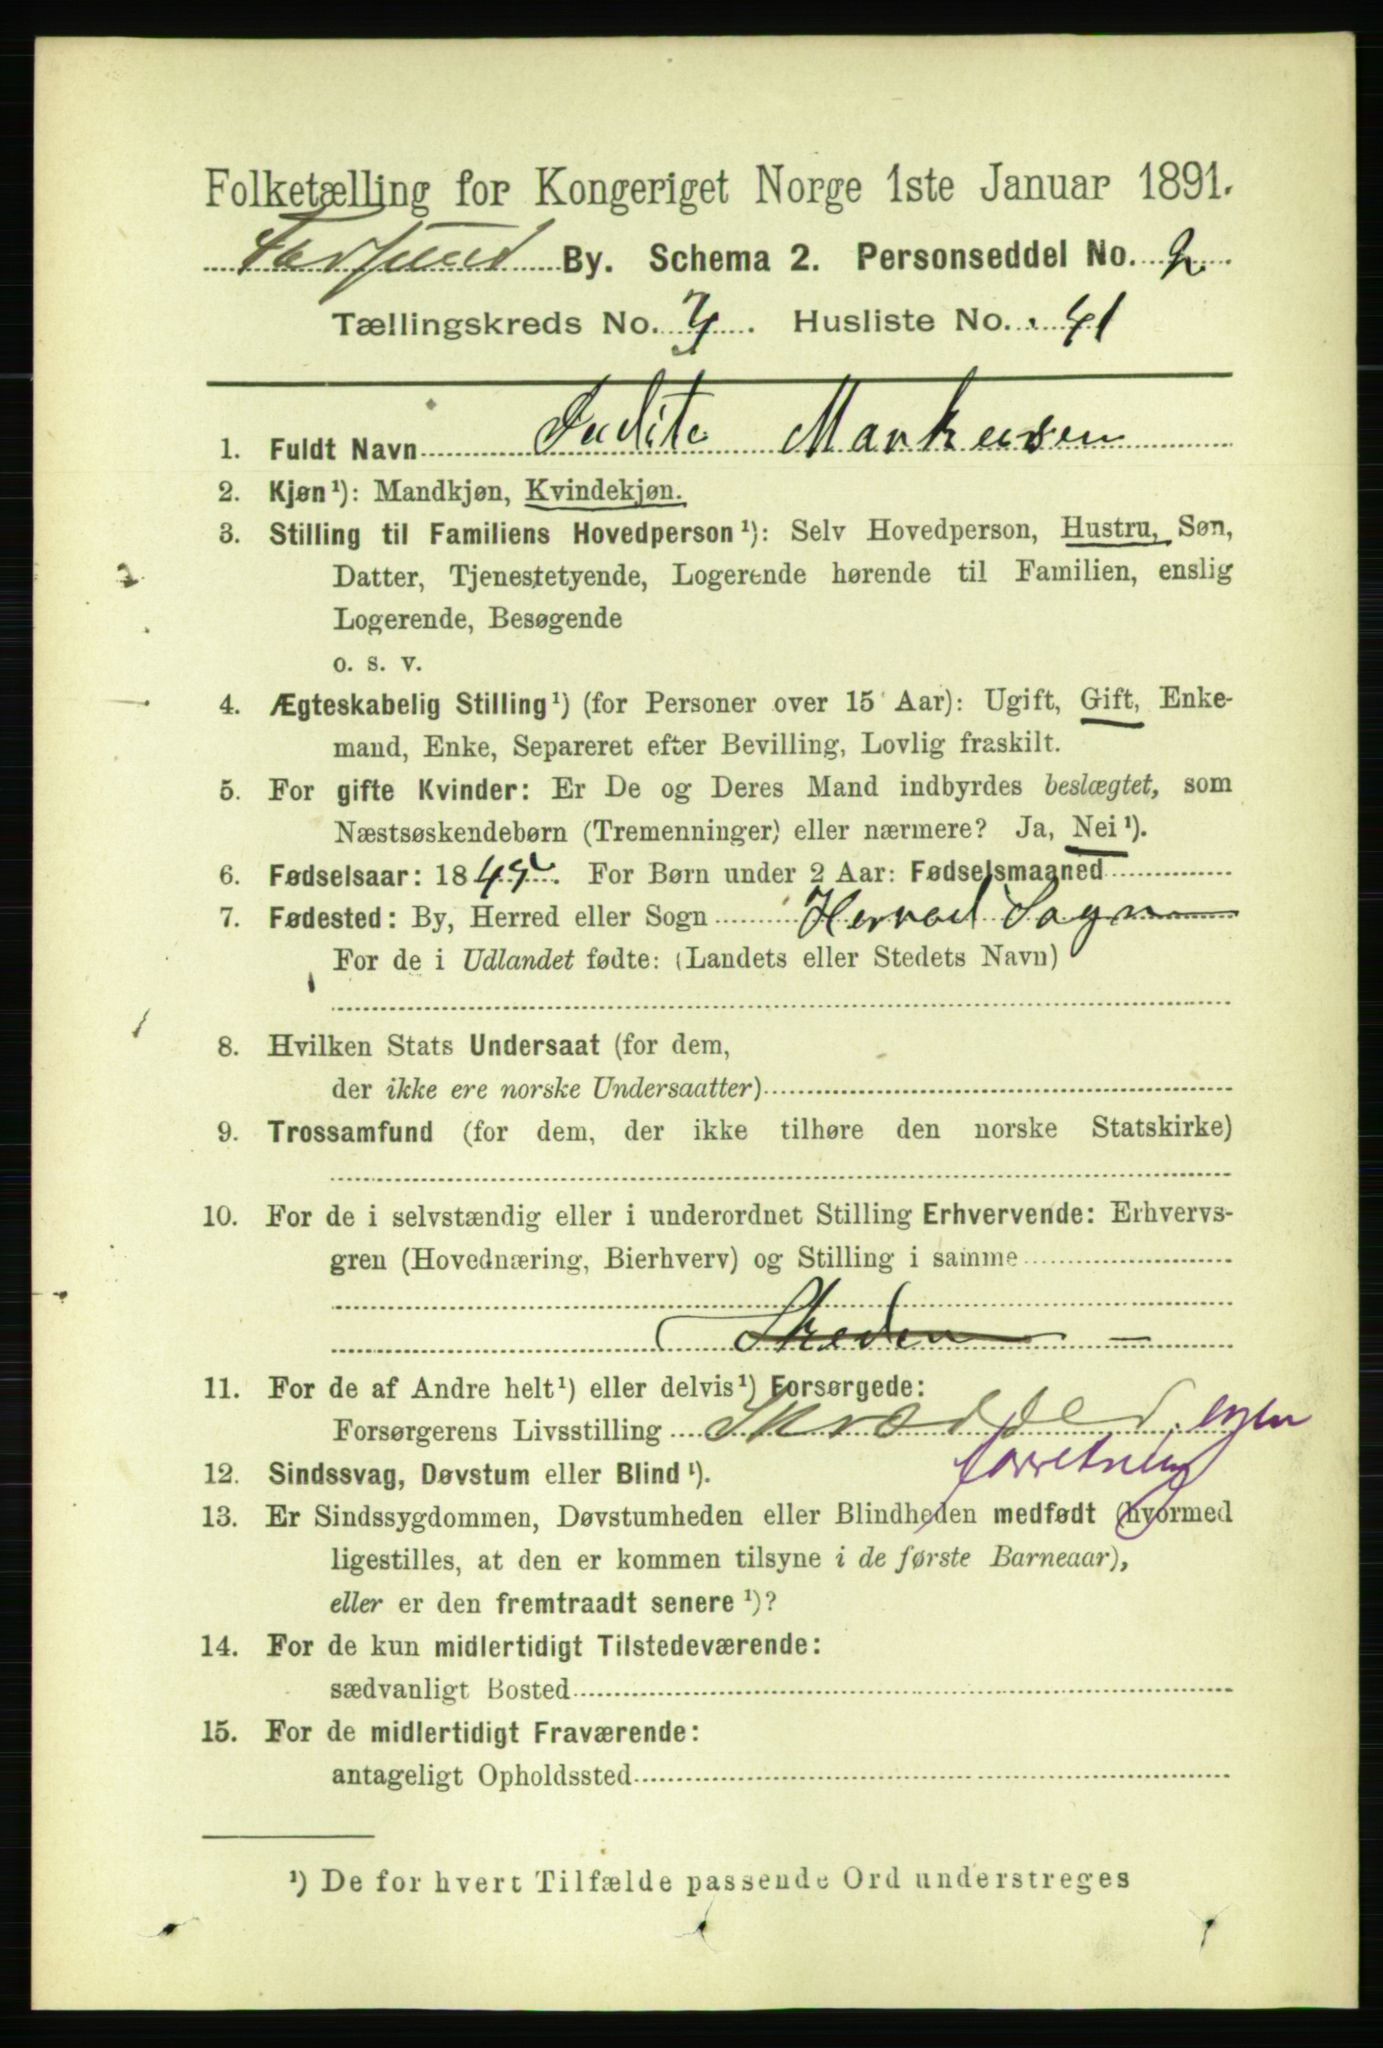 Folketælling for Kongeriget Norge 1ste Januar 1891.
Farsund By. Schema 2. Personseddel No. 2
Tællingskreds No. 7. Husliste No. 41
1. Fuldt Navn Judite Markusen
2. Kjøn¹): Mandkjøn, Kvindekjøn.
3. Stilling til Familiens Hovedperson¹): Selv Hovedperson, Hustru, Søn,
Datter, Tjenestetyende, Logerende hørende til Familien, enslig
Logerende, Besøgende
o. s. v.
4. Ægteskabelig Stilling¹) (for Personer over 15 Aar): Ugift, Gift, Enke-
mand, Enke, Separeret efter Bevilling, Lovlig fraskilt.
5. For gifte Kvinder: Er De og Deres Mand indbyrdes beslægtet, som
Næstsøskendebørn (Tremenninger) eller nærmere? Ja, Nei¹).
6. Fødselsaar: 1845. For Børn under 2 Aar: Fødselsmaaned
7. Fødested: By, Herred eller Sogn Herred Sogn
For de i Udlandet fødte: (Landets eller Stedets Navn)
8. Hvilken Stats Undersaat (for dem,
der ikke ere norske Undersaatter)
9. Trossamfund (for dem, der ikke tilhøre den norske Statskirke)
10. For de i selvstændig eller i underordnet Stilling Erhvervende: Erhvervs-
gren (Hovednæring, Bierhverv) og Stilling i samme
11. For de af Andre helt¹) eller delvis¹) Forsørgede:
Forsørgerens Livsstilling Skrædder, egen
forretning
12. Sindssvag, Døvstum eller Blind¹).
13. Er Sindssygdommen, Døvstumheden eller Blindheden medfødt (hvormed
ligestilles, at den er kommen tilsyne i de første Barneaar),
eller er den fremtraadt senere¹)?
14. For de kun midlertidigt Tilstedeværende:
sædvanligt Bosted
15. For de midlertidigt Fraværende:
antageligt Opholdssted
¹) De for hvert Tilfælde passende Ord understreges